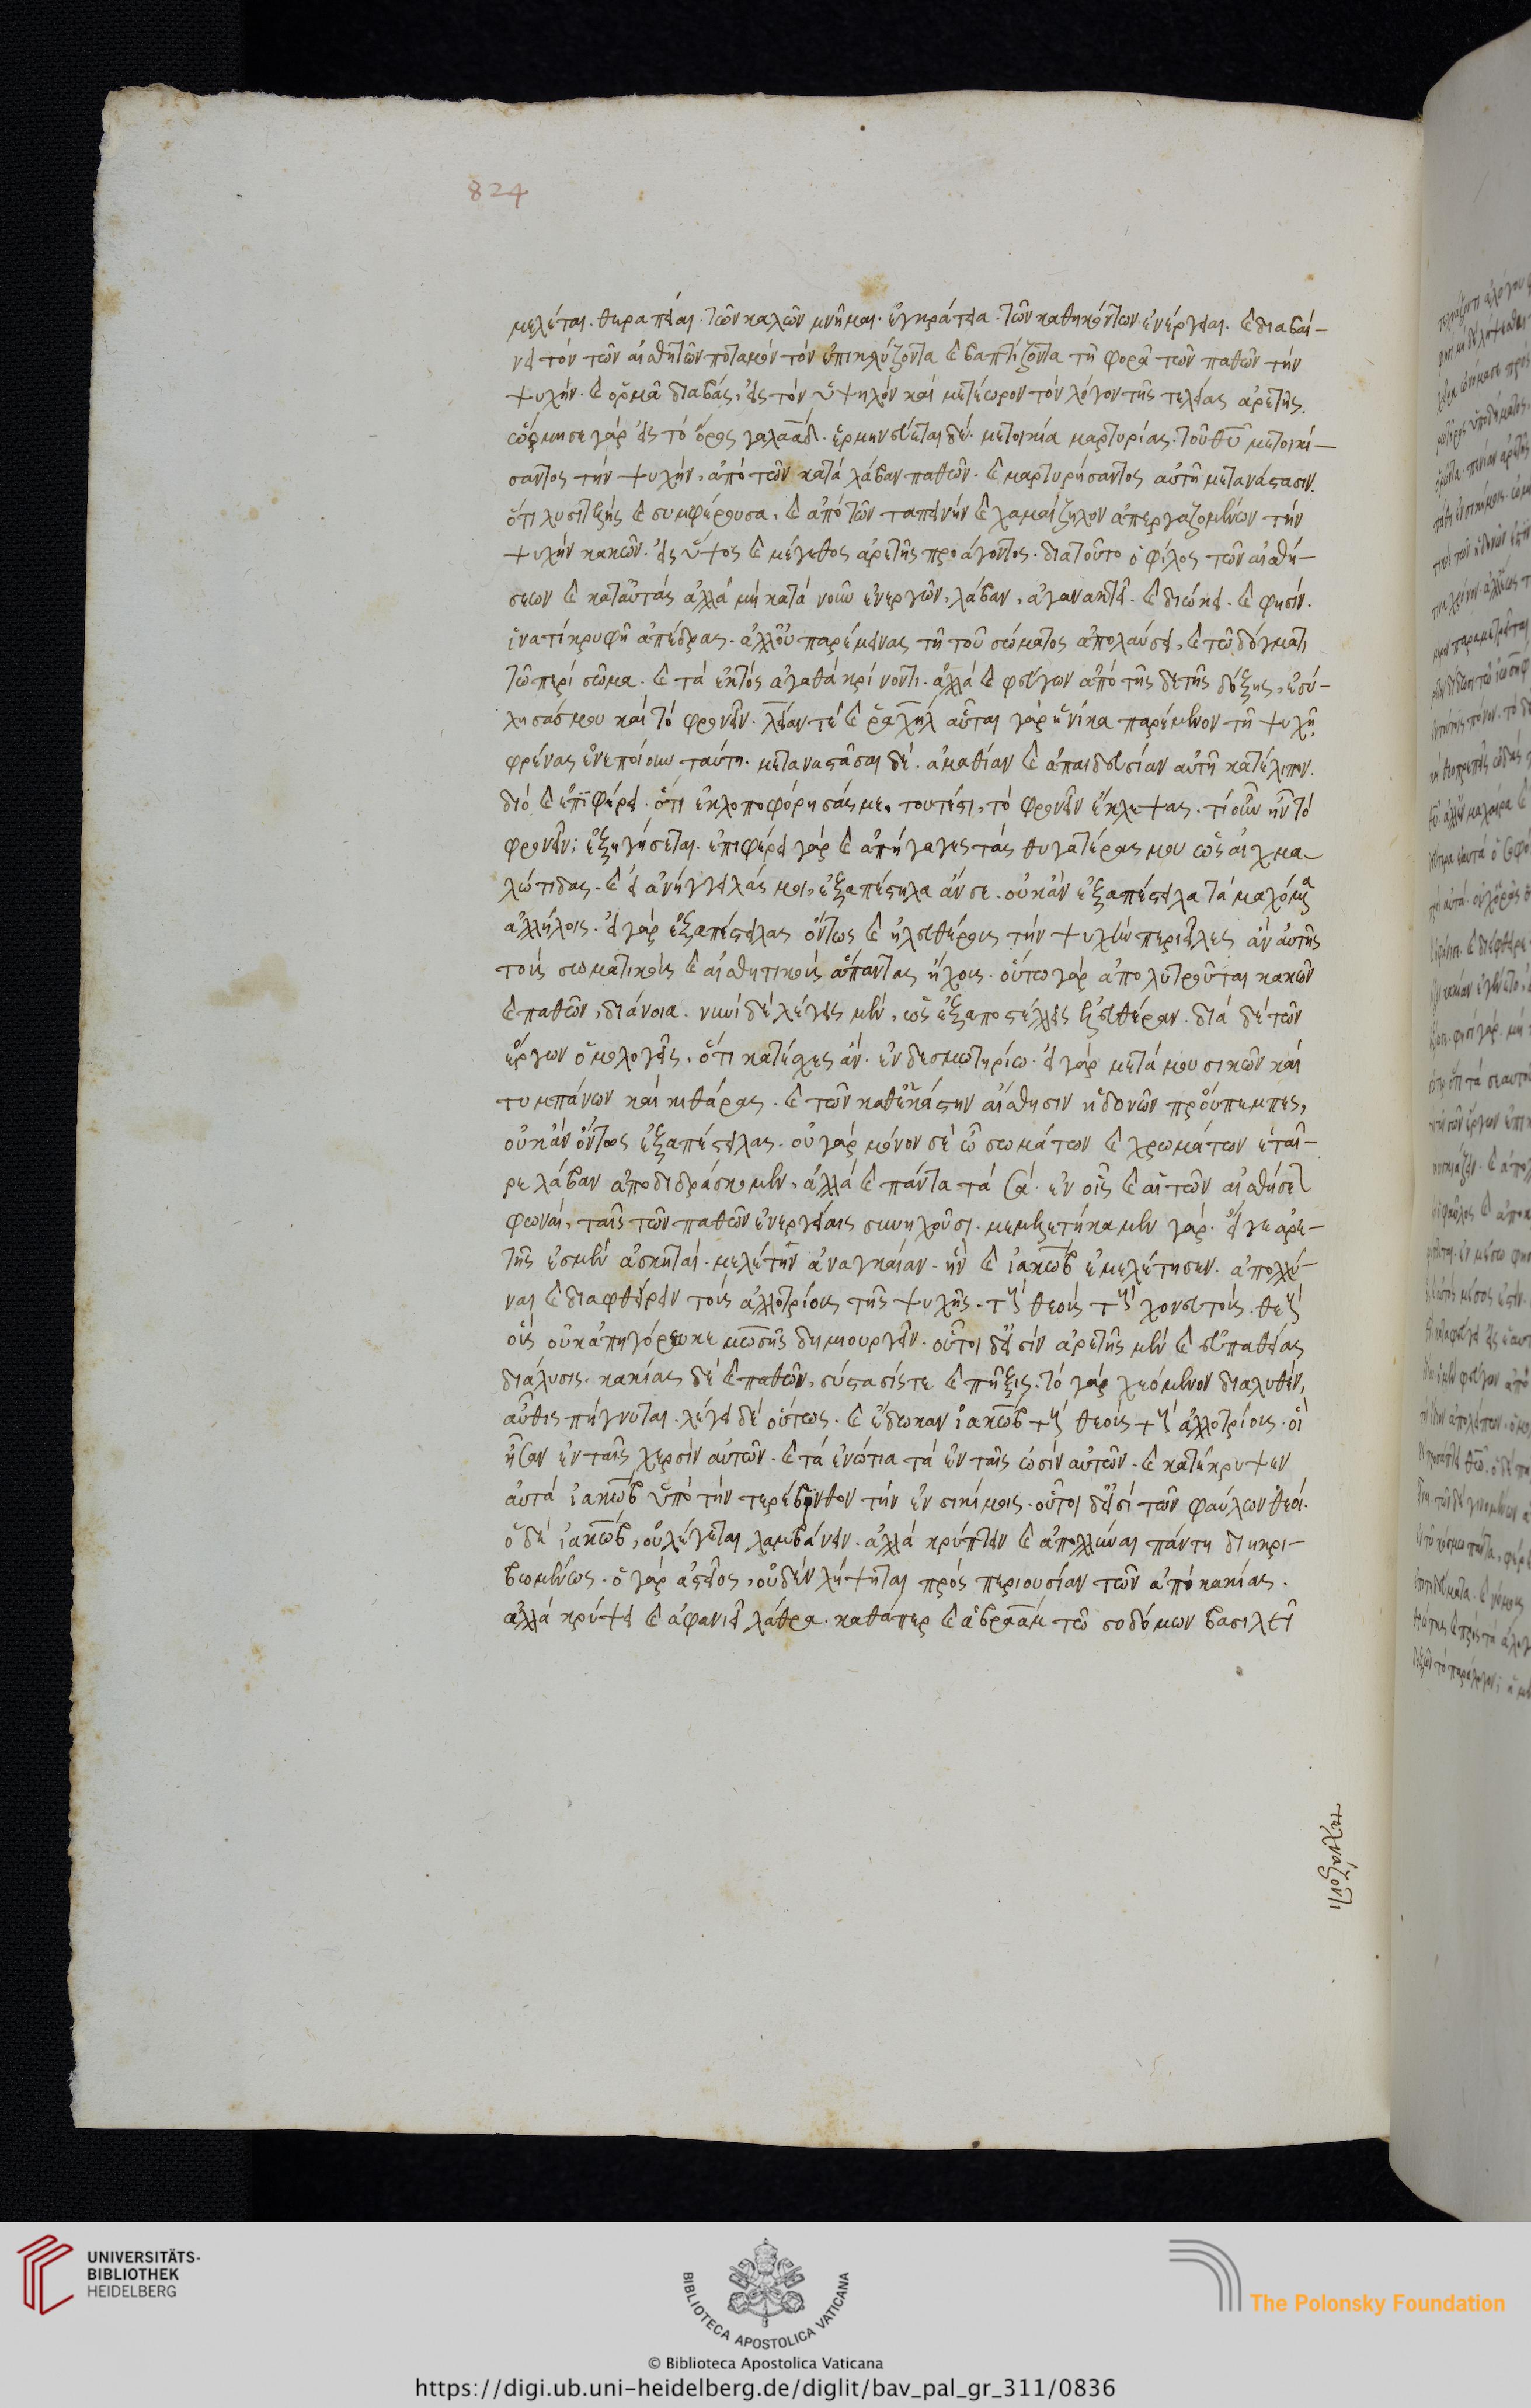 824
μελέται. θεραπεῖαι. τῶν καλῶν μνῆμαι. ἐγκράτεια. τῶν καθηκόντων ἐνέργειαι. καὶ διαβαί-
νει τὸν τῶν αἰσθητῶν ποταμὸν τὸν ἐπικλύζοντα καὶ βαπτίζοντα τῇ φορᾷ τῶν παθῶν τὴν
ψυχήν. καὶ ὁρμᾷ διαβὰς, εἰς τὸν ὑψηλὸν καὶ μετέωρον τὸν λόγον τῆς τελείας ἀρετῆς.
ὥρμησε γὰρ εἰς τὸ ὄρος γαλαάδ. ἑρμηνεύεται δὲ. μετοικία μαρτυρίας. τοῦ θεοῦ μετοικί-
σαντος τὴν ψυχὴν, ἀπὸ τῶν κατὰ λάβαν παθῶν. καὶ μαρτυρήσαντος αὐτῇ μετανάστασιν.
ὅτι λυσιτελὴς καὶ συμφέρουσα, καὶ ἀπὸ τῶν ταπεινὴν καὶ χαμαίζηλον ἀπεργαζομένων τὴν
ψυχὴν κακῶν. εἰς ὕψος καὶ μέγεθος ἀρετῆς προάγοντος. διατοῦτο ὁ φίλος τῶν αἰσθή-
σεων καὶ κατ' αὐτὰς ἀλλὰ μὴ κατὰ νοῦν ἐνεργῶν, λάβαν, ἀγανακτεῖ. καὶ διώκει. καὶ φησίν.
ἱνατί κρυφῇ ἀπέδρας. ἀλλ' οὐ παρέμεινας τῇ τοῦ σώματος ἀπολαύσει, καὶ τῷ δόγματι
τῷ περὶ σῶμα. καὶ τὰ ἐκτὸς ἀγαθὰ κρίνοντι. ἀλλὰ καὶ φεύγων ἀπὸ τῆσδε τῆς δόξης, ἐσύ-
λησάς μου καὶ τὸ φρονεῖν. λείαν τὲ καὶ ῥαχὴλ αὗται γὰρ ἡνίκα παρέμενον τῇ ψυχῇ,
φρένας ἐνεποίουν ταύτῃ. μεταναστᾶσαι δὲ. ἀμαθίαν καὶ ἀπαιδευσίαν αὐτῇ κατέλιπον.
διὸ καὶ ἐπιφέρει. ὅτι ἐκλοποφόρησάς με, τουτέστι, τὸ φρονεῖν ἔκλεψας. τί οὖν ἦν τὸ
φρονεῖν; ἐξηγήσεται. ἐπιφέρει γὰρ καὶ ἀπήγαγες τὰς θυγατέρας μου ὡς αἰχμα-
λώτιδας. καὶ εἰ ἀνήγγειλάς μοι, ἐξαπέστειλα ἄν σε. οὐκ ἂν ἐξαπέστειλα τὰ μαχόμενα
ἀλλήλοις. εἰ γὰρ ἐξαπέστειλας ὄντως καὶ ἠλευθέρους τὴν ψυχὴν περιεῖλες ἂν αὐτῆς
τοὺς σωματικοὺς καὶ αἰσθητικοὺς ἅπαντας ἤχους. οὕτω γὰρ ἀπολυτροῦται κακῶν
καὶ παθῶν, διάνοια. νυνὶ δὲ λέγεις μὲν, ὡς ἐξαποστέλλεις ἐλευθέραν. διὰ δὲ τῶν
ἔργων ὁμολογεῖς, ὅτι κατέσχες ἂν. ἐν δεσμωτηρίῳ. εἰ γὰρ μετὰ μουσικῶν καὶ
τυμπάνων καὶ κιθάρας. καὶ τῶν καθ' ἑκάστην αἴσθησιν ἡδονῶν προὔπεμπες,
οὐκ ἂν ὄντως ἐξαπέστειλας. οὐ γὰρ μόνον σὲ ὦ σωμάτων καὶ χρωμάτων ἑταῖ-
ρε λάβαν ἀποδιδράσκομεν, ἀλλὰ καὶ πάντα τὰ σά. ἐν οἷς καὶ αἱ τῶν αἰσθήσεων
φωναὶ, ταῖς τῶν παθῶν ἐνεργείαις συνηχοῦσι. μεμελετήκαμεν γὰρ. εἴγε ἀρε-
τῆς ἐσμὲν ἀσκηταὶ. μελέτην ἀναγκαίαν. ἣν καὶ ἰακὼβ ἐμελέτησεν. ἀπολλύ-
ναι καὶ διαφθείρειν τοὺς ἀλλοτρίους τῆς ψυχῆς. τοὺς θεοὺς τοὺς χωνευτοὺς. θεοὺς
οὓς οὐκ ἀπηγόρευκε μωσῆς δημιουργεῖν. οὗτοι δ' εἰσὶν ἀρετῆς μὲν καὶ εὐπαθείας
διάλυσις. κακίας δὲ καὶ παθῶν, σύστασίς τε καὶ πῆξις. τὸ γὰρ χεόμενον διαλυθὲν,
αὖθις πήγνυται. λέγει δὲ οὕτως. καὶ ἔδωκαν ἰακὼβ τοὺς θεοὺς τοὺς ἀλλοτρίους. οἳ
ἦσαν ἐν ταῖς χερσὶν αὐτῶν. καὶ τὰ ἐνώτια τὰ ἐν τοῖς ὠσὶν αὐτῶν. καὶ κατέκρυψεν
αὐτὰ ἰακὼβ ὑπὸ τὴν τερέβινθον τὴν ἐν σικίμοις. οὗτοι δ' εἰσὶ τῶν φαύλων θεοί.
ὁ δὲ ἰακὼβ, οὐ λέγεται λαμβάνειν. ἀλλὰ κρύπτειν καὶ ἀπολλύναι πάντῃ διηκρι-
βωμένως. ὁ γὰρ ἀστεῖος, οὐδὲν λήψηται πρὸς περιουσίαν τῶν ἀπὸ κακίας.
ἀλλὰ κρύψει καὶ ἀφανιεῖ λάθρα. καθάπερ καὶ ἀβραὰμ τῷ σοδόμων βασιλεῖ
τεχνάζοντι
UNIVERSITÄTS-
BIBLIOTHEK
HEIDELBERG
BIBLIOTECA APOSTOLICA VATICANA
The Polonsky Foundation
© Biblioteca Apostolica Vaticana
https://digi.ub.uni-heidelberg.de/diglit/bav_pal_gr_311/0836